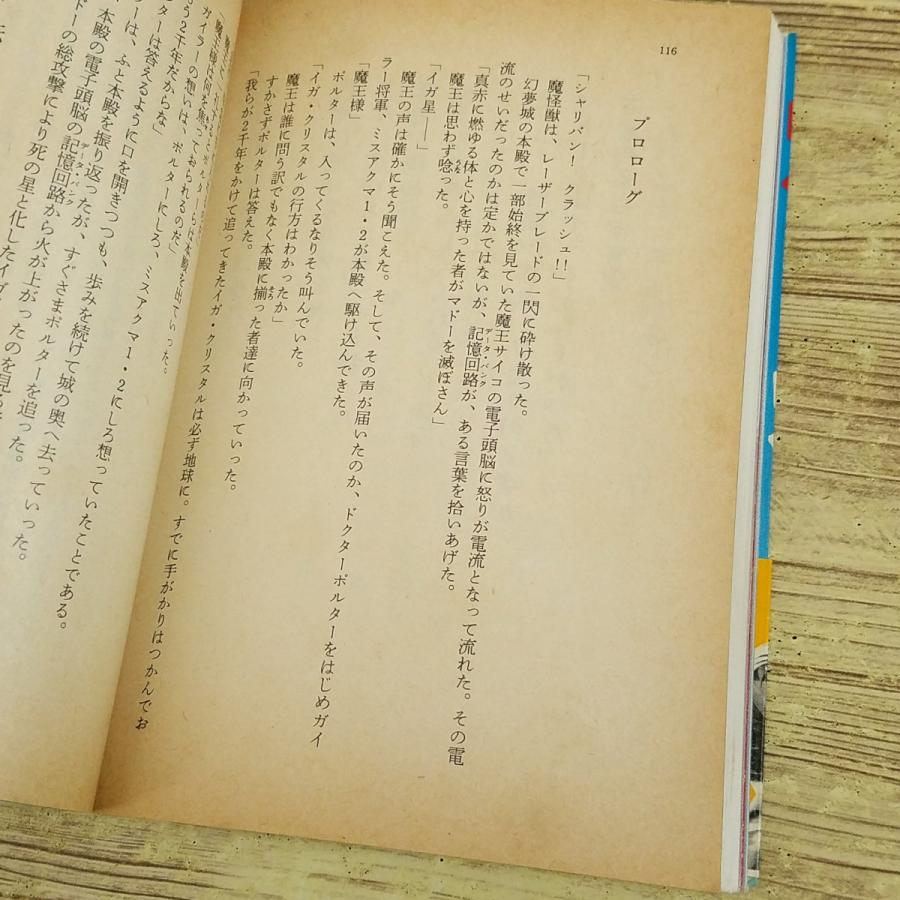 116
プロローグ
「シャリバン！　クラッシュ!!」
魔怪獣は、レーザーブレードの一閃に砕け散った。
幻夢城の本殿で一部始終を見ていた魔王サイコの電子頭脳に怒りが電流となって流れた。その電
流のせいだったのかは定かではないが、記憶回路が、ある言葉を拾いあげた。
データ・バンク
「真赤に燃ゆる体と心を持った者がマドーを滅ぼさん」
魔王は思わず唸った。
うな
「イガ星――」
魔王の声は確かにそう聞こえた。そして、その声が届いたのか、ドクターポルターをはじめガイ
ラー将軍、ミスアクマ1・2が本殿へ駆け込んできた。
「魔王様」
ポルターは、入ってくるなりそう叫んでいた。
「イガ・クリスタルの行方はわかったか」
魔王は誰に問う訳でもなく本殿に揃った者達に向かっていった。
そろ
すかさずポルターは答えた。
「我らが2千年をかけて追ってきたイガ・クリスタルは必ず地球に。すでに手がかりはつかんでお
を出ていった。
「魔王様は何を焦っておられるのだ」
ガイラーの想いは、ポルターにしろ、ミスアクマ1・2にしろ想っていたことである。
う2千年だからな」
ターは答えるように口を開きつつも、歩みを続けて城の奥へ去っていった。
ーは、ふと本殿を振り返ったが、すぐさまポルターを追った。
本殿の電子頭脳の記憶回路から火が上がったのを見る
データ・バンク
ドーの総攻撃により死の星と化したイガ